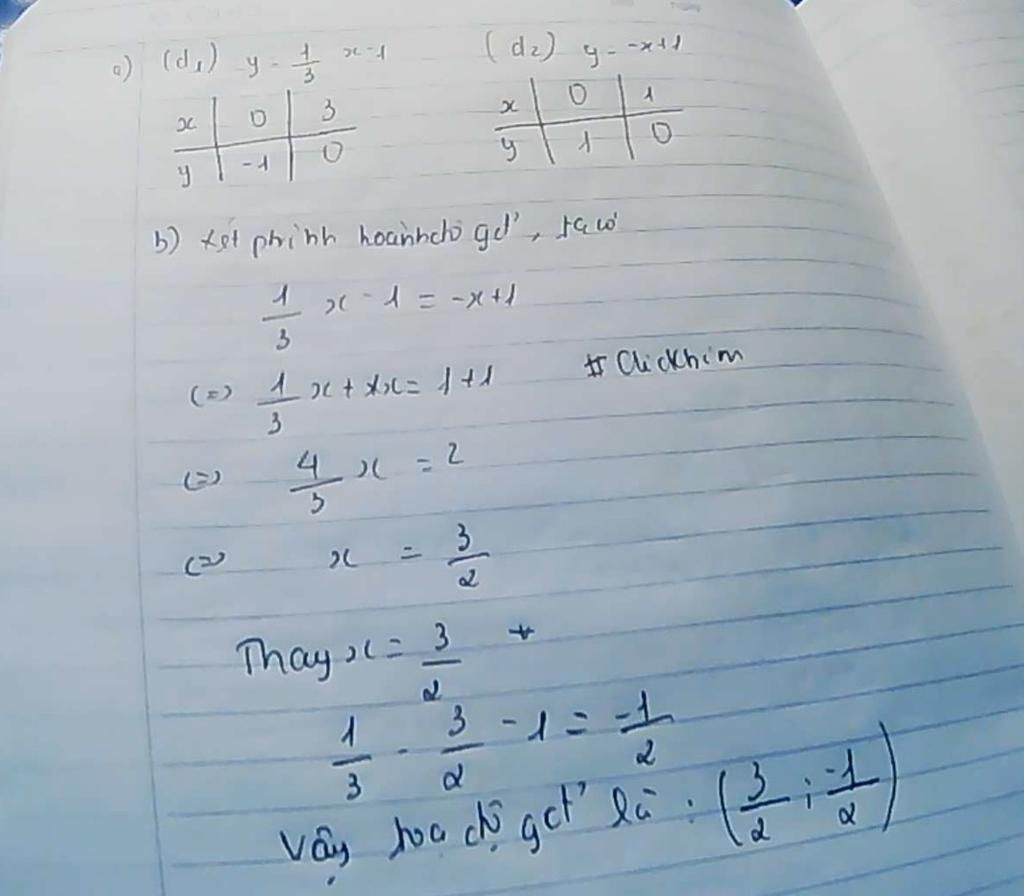 a) (d₁) y = 1/3 x - 1 (d₂) y = -x+1
x | 0 | 3 x | 0 | 1
y | -1 | 0 y | 1 | 0
b) xét ptrình hoành độ gđ', ta có
1/3 x - 1 = -x+1
(=) 1/3 x + 1x = 1+1 # Clickhim
(=) 4/3 x = 2
(=) x = 3/2
Thay x = 3/2
1/3 . 3/2 - 1 = -1/2
Vậy toạ độ gđ' là : (3/2 ; -1/2)